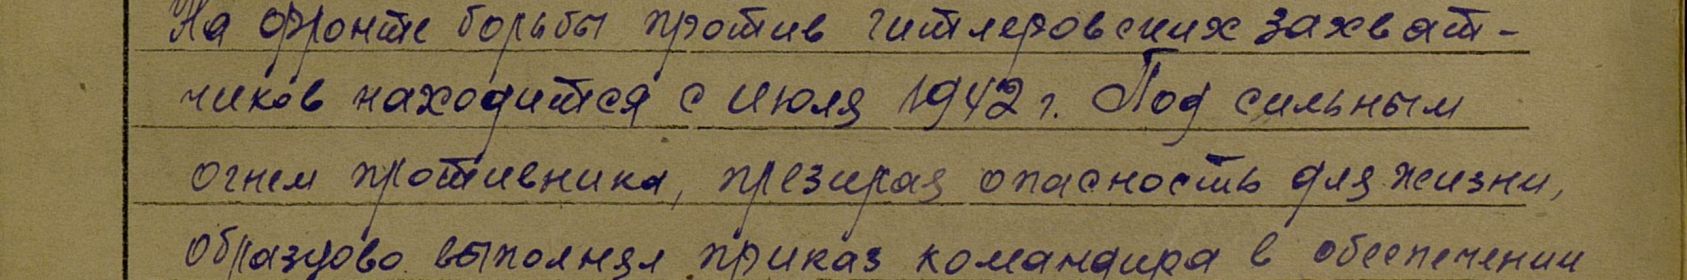 На фронте борьбы против гитлеровских захват-
чиков находится с июля 1942 г. Под сильным
огнем противника, презирая опасность для жизни,
образцово выполнял приказ командира в обеспечении